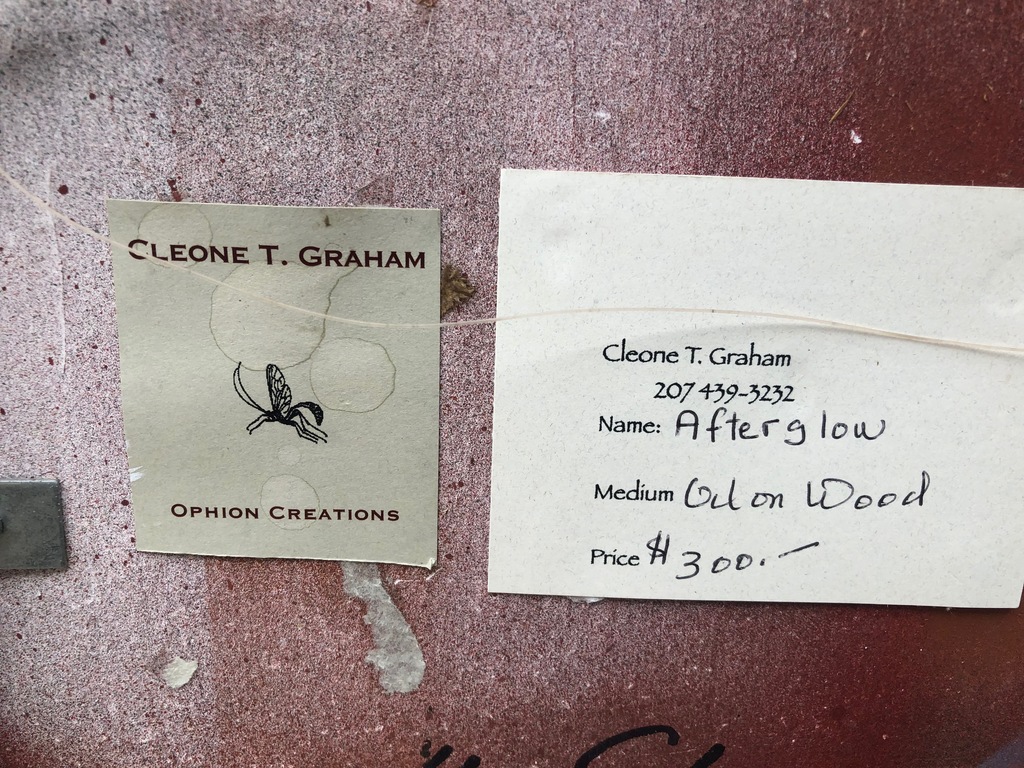 CLEONE T. GRAHAM
OPHION CREATIONS
Cleone T. Graham
207 439-3232
Name: Afterglow
Medium Oil on Wood
Price $300.—